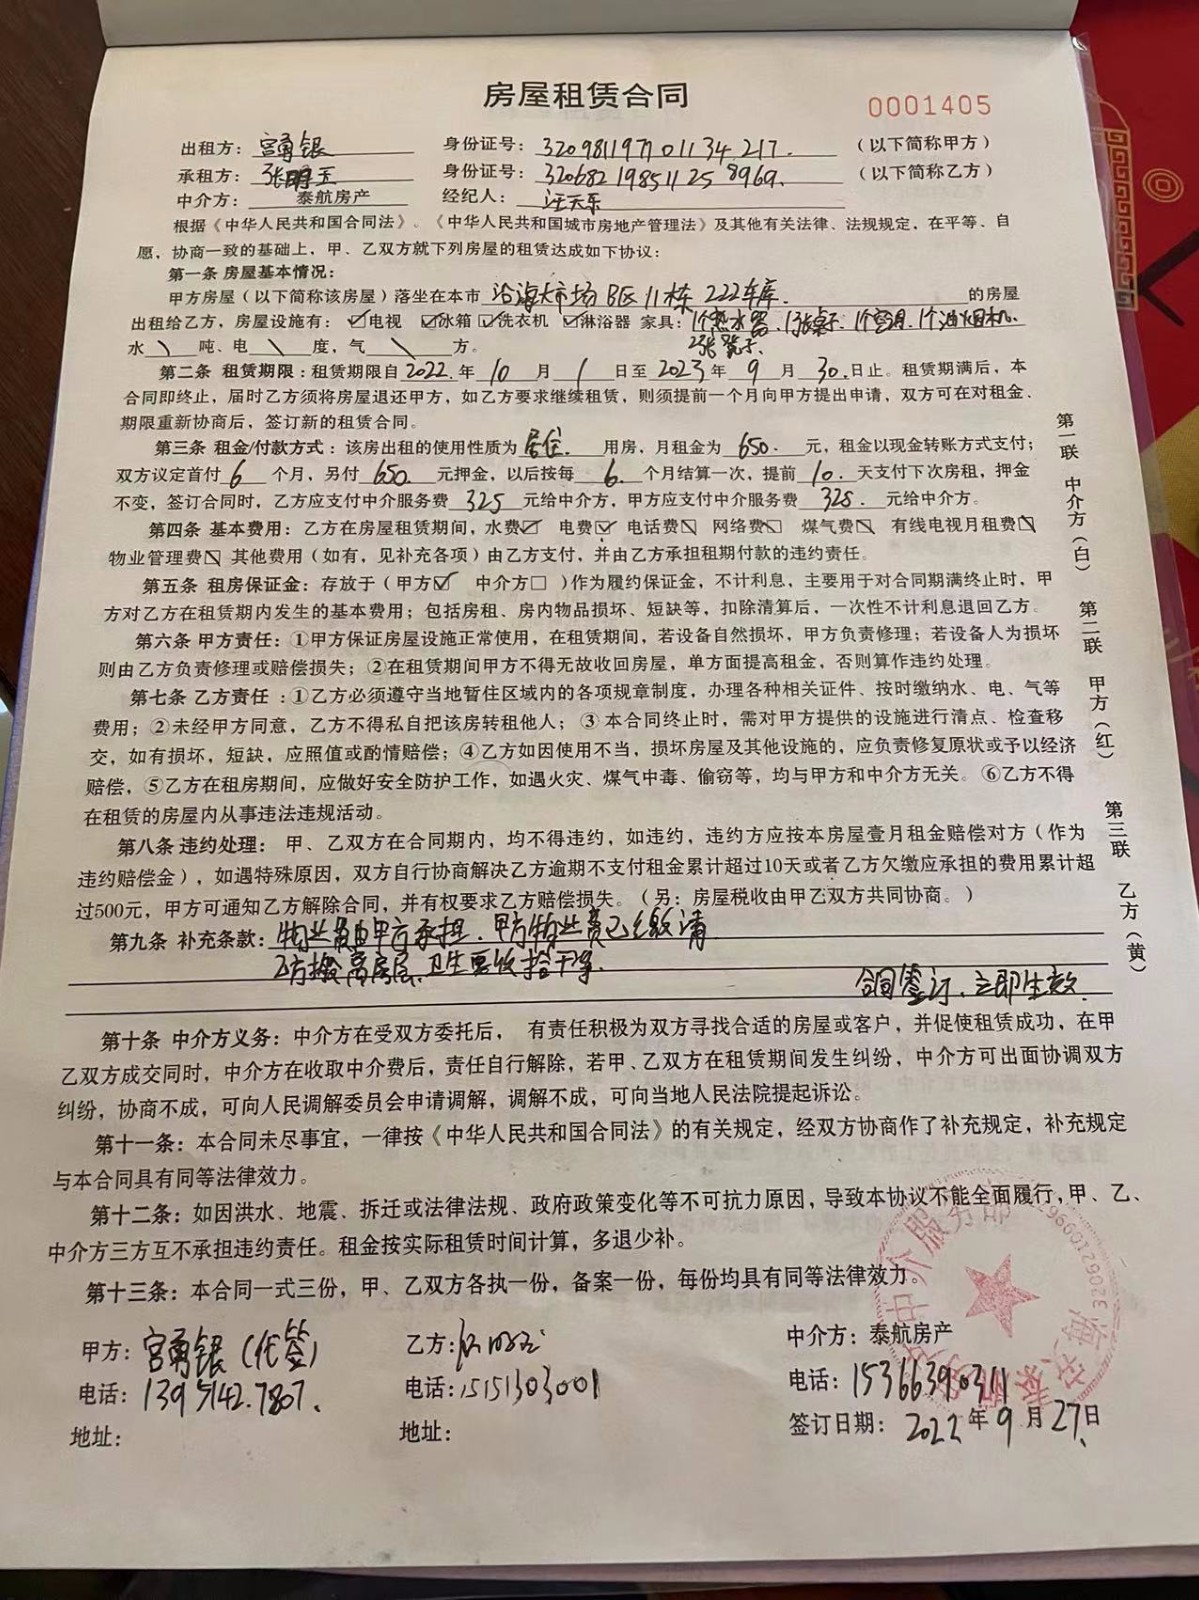 房屋租赁合同
0001405
出租方：宫勇银 身份证号：320981197101134217. （以下简称甲方）
承租方：张明玉 身份证号：320682198511258969. （以下简称乙方）
中介方：泰航房产 经纪人：汪天东
根据《中华人民共和国合同法》、《中华人民共和国城市房地产管理法》及其他有关法律、法规规定，在平等、自
愿，协商一致的基础上，甲、乙双方就下列房屋的租赁达成如下协议：
第一条 房屋基本情况：
甲方房屋（以下简称该房屋）落坐在本市 沿海大市场B区11栋222车库. 的房屋
出租给乙方，房屋设施有：☑电视 ☑冰箱 ☑洗衣机 ☑淋浴器 家具：1个热水器、1张桌子、1个油烟机.
2张凳子.
水\吨、电\度，气\方。
第二条 租赁期限：租赁期限自2022.年10月1日至2023年9月30.日止。租赁期满后，本
合同即终止，届时乙方须将房屋退还甲方，如乙方要求继续租赁，则须提前一个月向甲方提出申请，双方可在对租金、
期限重新协商后，签订新的租赁合同。
第三条 租金/付款方式：该房出租的使用性质为居住.用房，月租金为650.元，租金以现金转账方式支付；
双方议定首付6个月，另付650.元押金，以后按每6.个月结算一次，提前10.天支付下次房租，押金
不变，签订合同时，乙方应支付中介服务费325元给中介方，甲方应支付中介服务费325.元给中介方。
第四条 基本费用：乙方在房屋租赁期间，水费☑ 电费☑ 电话费 网络费 煤气费 有线电视月租费
物业管理费 其他费用（如有，见补充各项）由乙方支付，并由乙方承担租期付款的违约责任。
第五条 租房保证金：存放于（甲方☑ 中介方□ ）作为履约保证金，不计利息，主要用于对合同期满终止时，甲
方对乙方在租赁期内发生的基本费用；包括房租、房内物品损坏、短缺等，扣除清算后，一次性不计利息退回乙方。
第六条 甲方责任：①甲方保证房屋设施正常使用，在租赁期间，若设备自然损坏，甲方负责修理；若设备人为损坏
则由乙方负责修理或赔偿损失；②在租赁期间甲方不得无故收回房屋，单方面提高租金，否则算作违约处理。
第七条 乙方责任：①乙方必须遵守当地暂住区域内的各项规章制度，办理各种相关证件、按时缴纳水、电、气等
费用；②未经甲方同意，乙方不得私自把该房转租他人；③本合同终止时，需对甲方提供的设施进行清点、检查移
交，如有损坏，短缺，应照值或酌情赔偿；④乙方如因使用不当，损坏房屋及其他设施的，应负责修复原状或予以经济
赔偿，⑤乙方在租房期间，应做好安全防护工作，如遇火灾、煤气中毒、偷窃等，均与甲方和中介方无关。⑥乙方不得
在租赁的房屋内从事违法违规活动。
第八条 违约处理：甲、乙双方在合同期内，均不得违约，如违约，违约方应按本房屋壹月租金赔偿对方（作为
违约赔偿金），如遇特殊原因，双方自行协商解决乙方逾期不支付租金累计超过10天或者乙方欠缴应承担的费用累计超
过500元，甲方可通知乙方解除合同，并有权要求乙方赔偿损失。（另：房屋税收由甲乙双方共同协商。）
第九条 补充条款：物业费由甲方承担.甲方物业费已缴清
乙方搬离房屋.卫生要收拾干净.
合同签订、立即生效.
第十条 中介方义务：中介方在受双方委托后， 有责任积极为双方寻找合适的房屋或客户，并促使租赁成功，在甲
乙双方成交同时，中介方在收取中介费后，责任自行解除，若甲、乙双方在租赁期间发生纠纷，中介方可出面协调双方
纠纷，协商不成，可向人民调解委员会申请调解，调解不成，可向当地人民法院提起诉讼。
第十一条：本合同未尽事宜，一律按《中华人民共和国合同法》的有关规定，经双方协商作了补充规定，补充规定
与本合同具有同等法律效力。
第十二条：如因洪水、地震、拆迁或法律法规、政府政策变化等不可抗力原因，导致本协议不能全面履行，甲、乙、
中介方三方互不承担违约责任。租金按实际租赁时间计算，多退少补。
第十三条：本合同一式三份，甲、乙双方各执一份，备案一份，每份均具有同等法律效力。
甲方：宫勇银（代签） 乙方：张明玉 中介方：泰航房产
电话：13951427807. 电话：15151303001 电话：15366390311
地址： 地址： 签订日期：2022年9月27.日
第一联 中介方（白）
第二联 甲方（红）
第三联 乙方（黄）